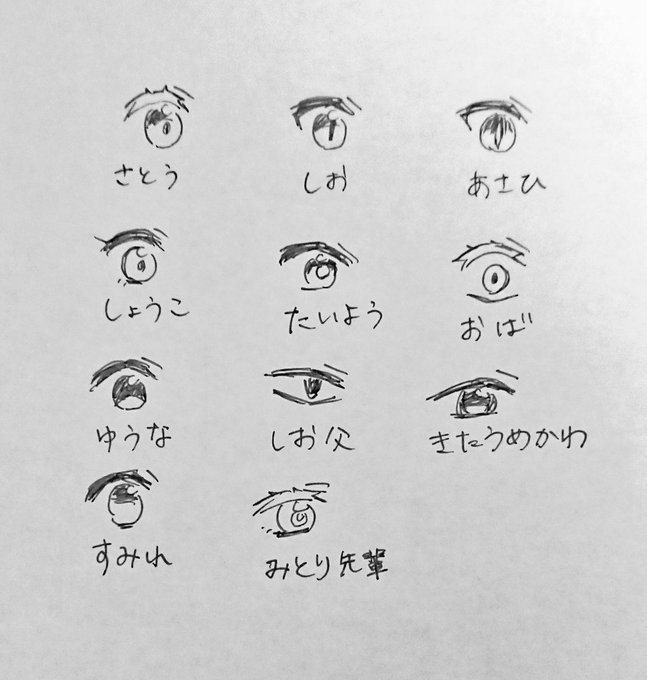 さとう
しお
あさひ
しょうこ
たいよう
おば
ゆうな
しお父
きたうめかわ
すみれ
みとり先輩